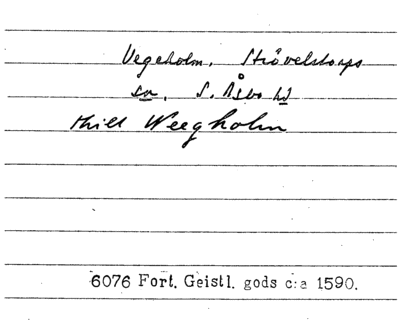 Vegeholm, Strövelstorps
sn, S. Åsbo hd
thill Weegholm
6076 Fort. Geistl. gods c:a 1590.